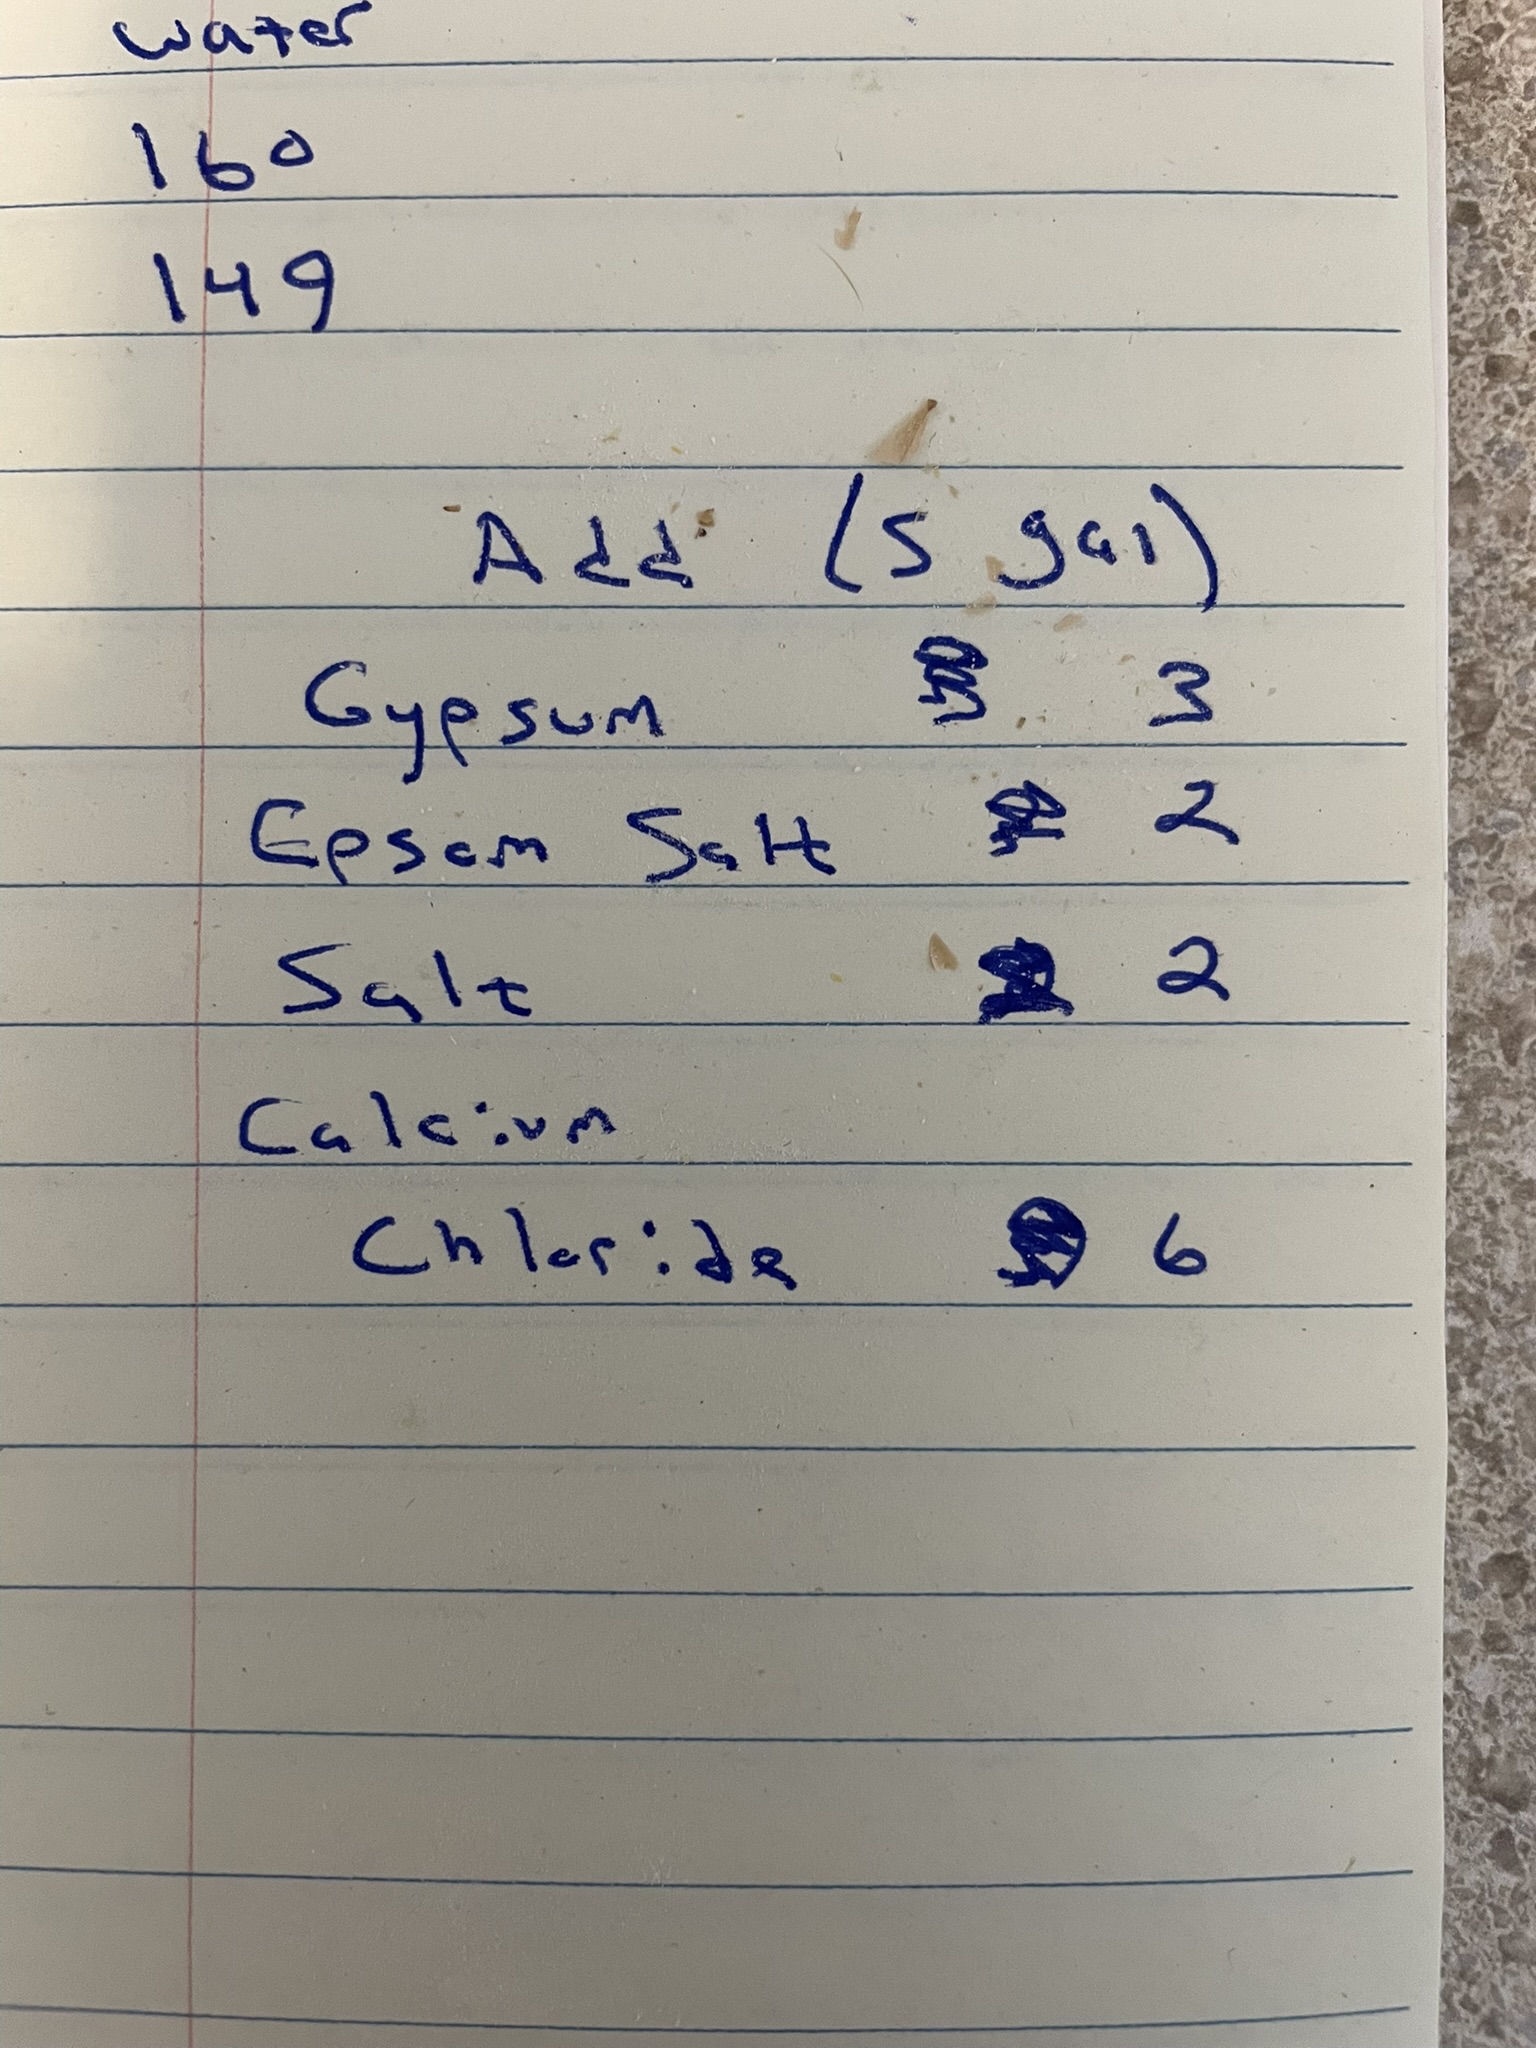 water
160
149
Add (5 gal)
Gypsum 3
Epsom Salt 2
Salt 2
Calcium
Chloride 6